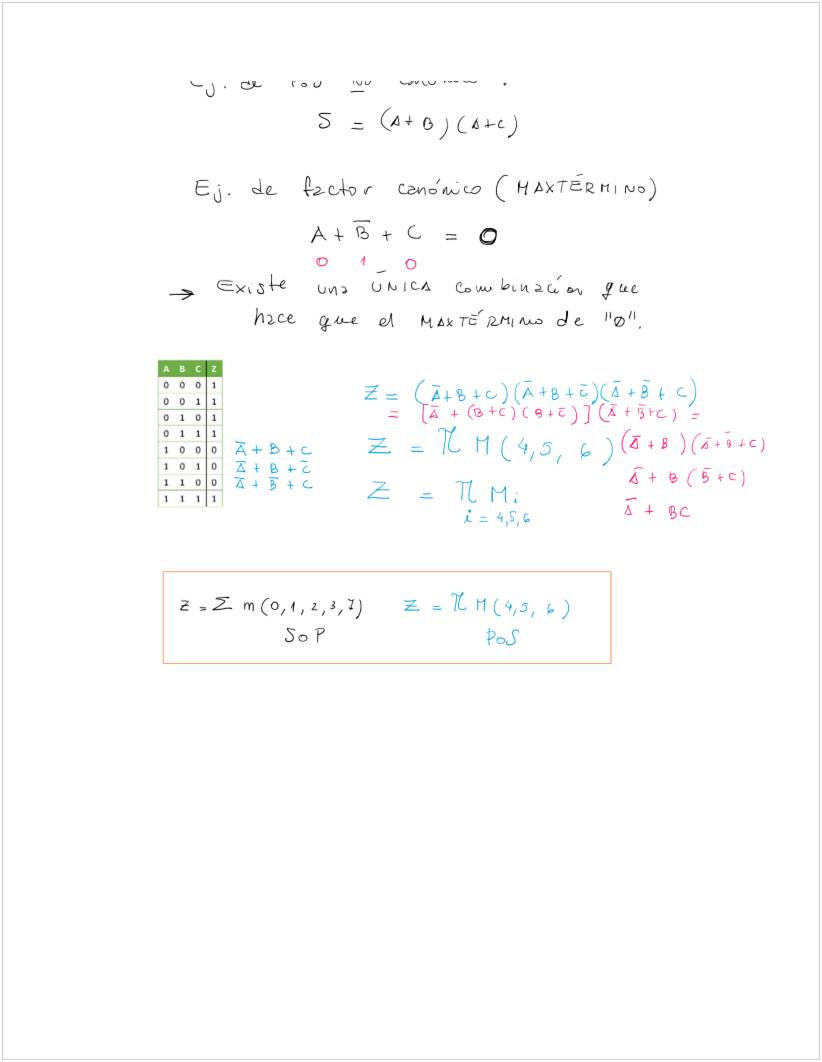 Ej. de
S = (A+B)(A+C)
Ej. de factor canónico (MAXTÉRMINO)
A + B̅ + C = 0
0 1 0
→ Existe una ÚNICA combinación que
hace que el MAXTÉRMINO de "0".
A B C Z
0 0 0 1
0 0 1 1
0 1 0 1
0 1 1 1
1 0 0 0 A̅ + B + C
1 0 1 0 A̅ + B + C̅
1 1 0 0 A̅ + B̅ + C
1 1 1 1
Z = (A̅+B+C)(A̅+B+C̅)(A̅+B̅+C)
= [A̅ + (B+C)(B+C̅)](A̅+B̅+C) =
(A̅+B)(A̅+B̅+C)
A̅ + B(B̅+C)
A̅ + BC
Z = π M(4,5,6)
Z = π Mi
i = 4,5,6
Z = Σ m(0,1,2,3,7) Z = π M(4,5,6)
SoP PoS